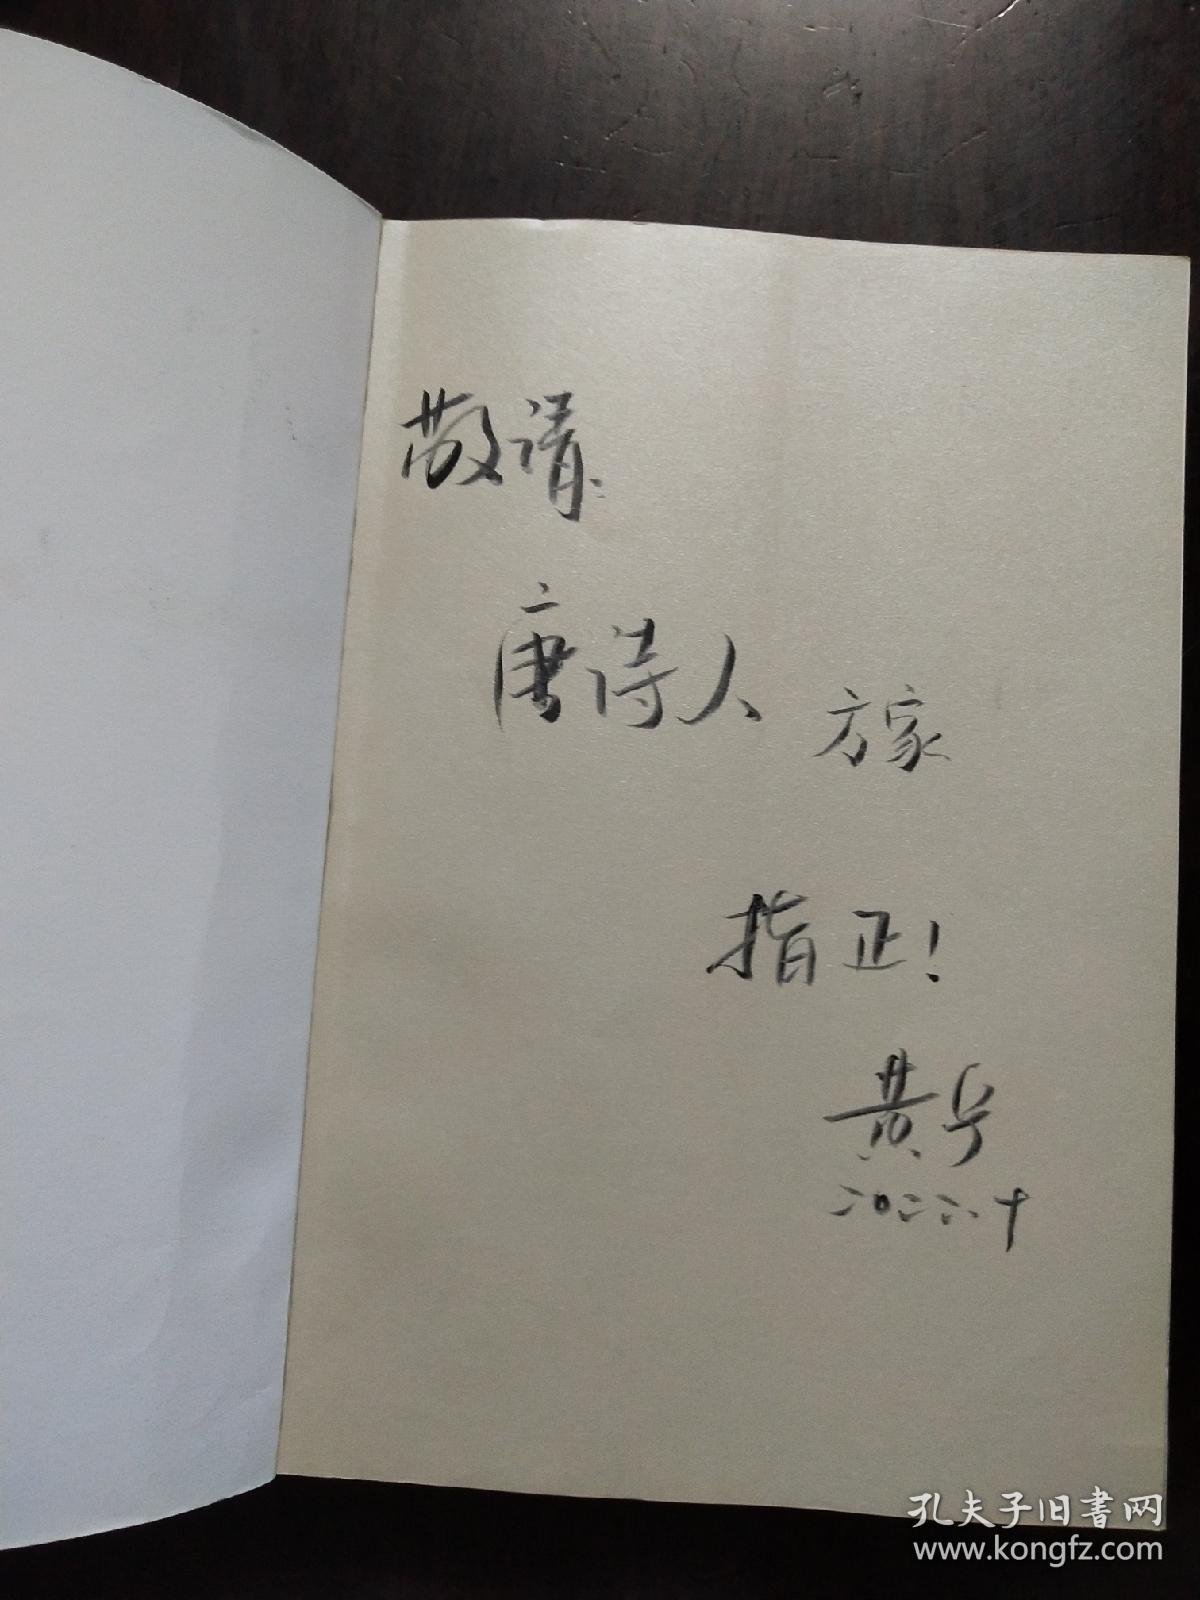 敬请:
唐诗人 方家
指正!
黄
二〇二二.十
孔夫子旧书网
www.kongfz.com